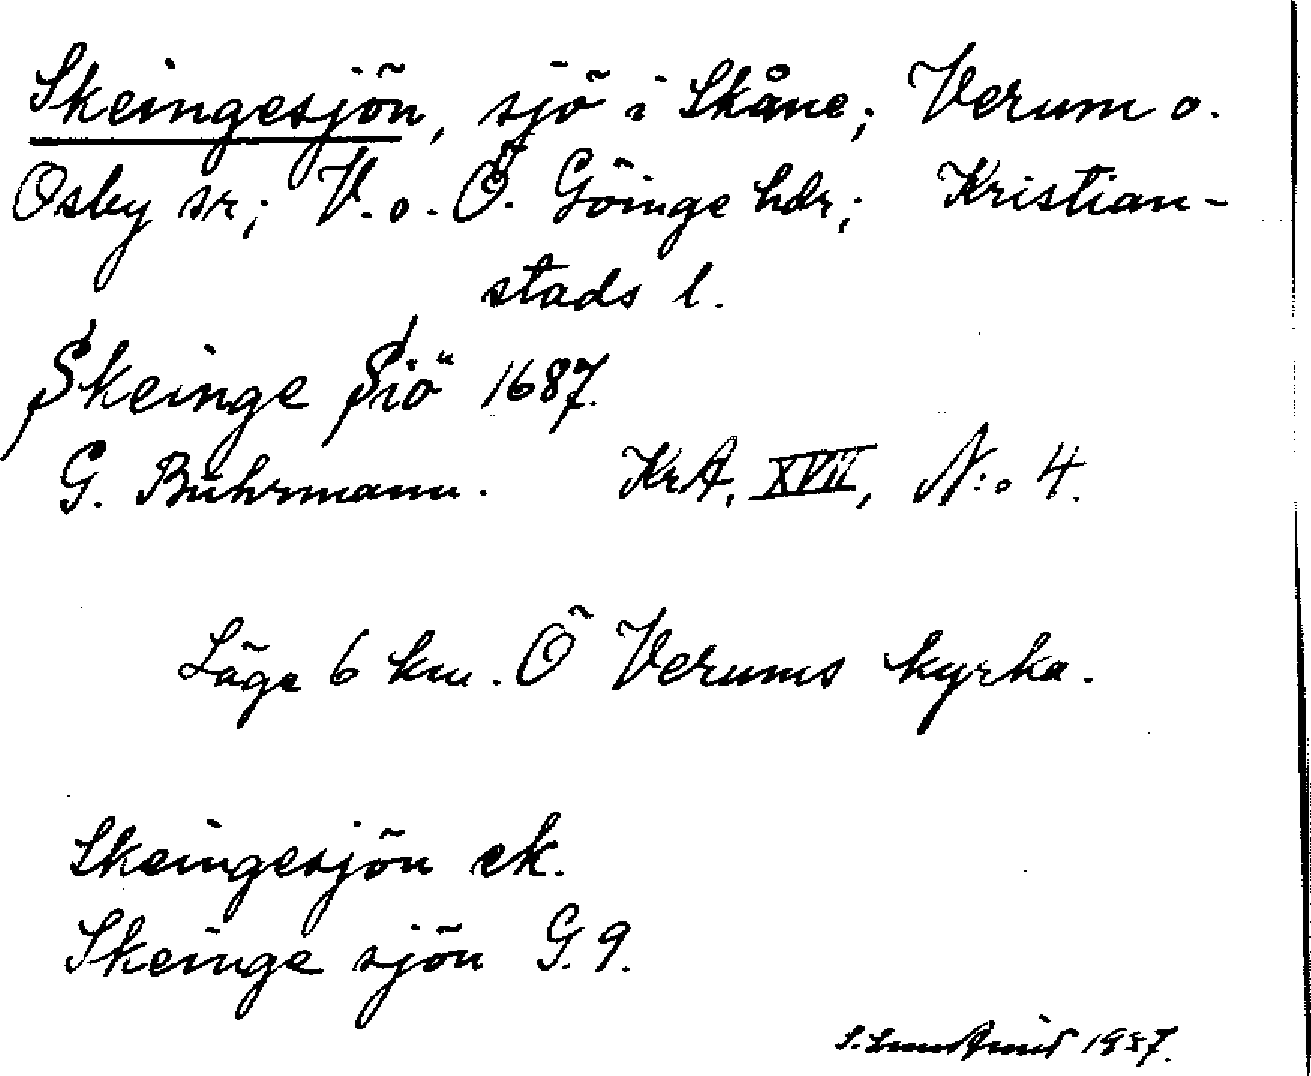 Skeingesjön, sjö i Skåne; Verum o.
Osby sr; V. o. Ö. Göinge hdr; Kristian-
stads l.
Skeinge Siö 1687.
G. Buhrmann. KrA, XVII, N:o 4.
Läge 6 km. Ö Verums kyrka.
Skeingesjön ek.
Skeinge sjön G. 9.
1937.